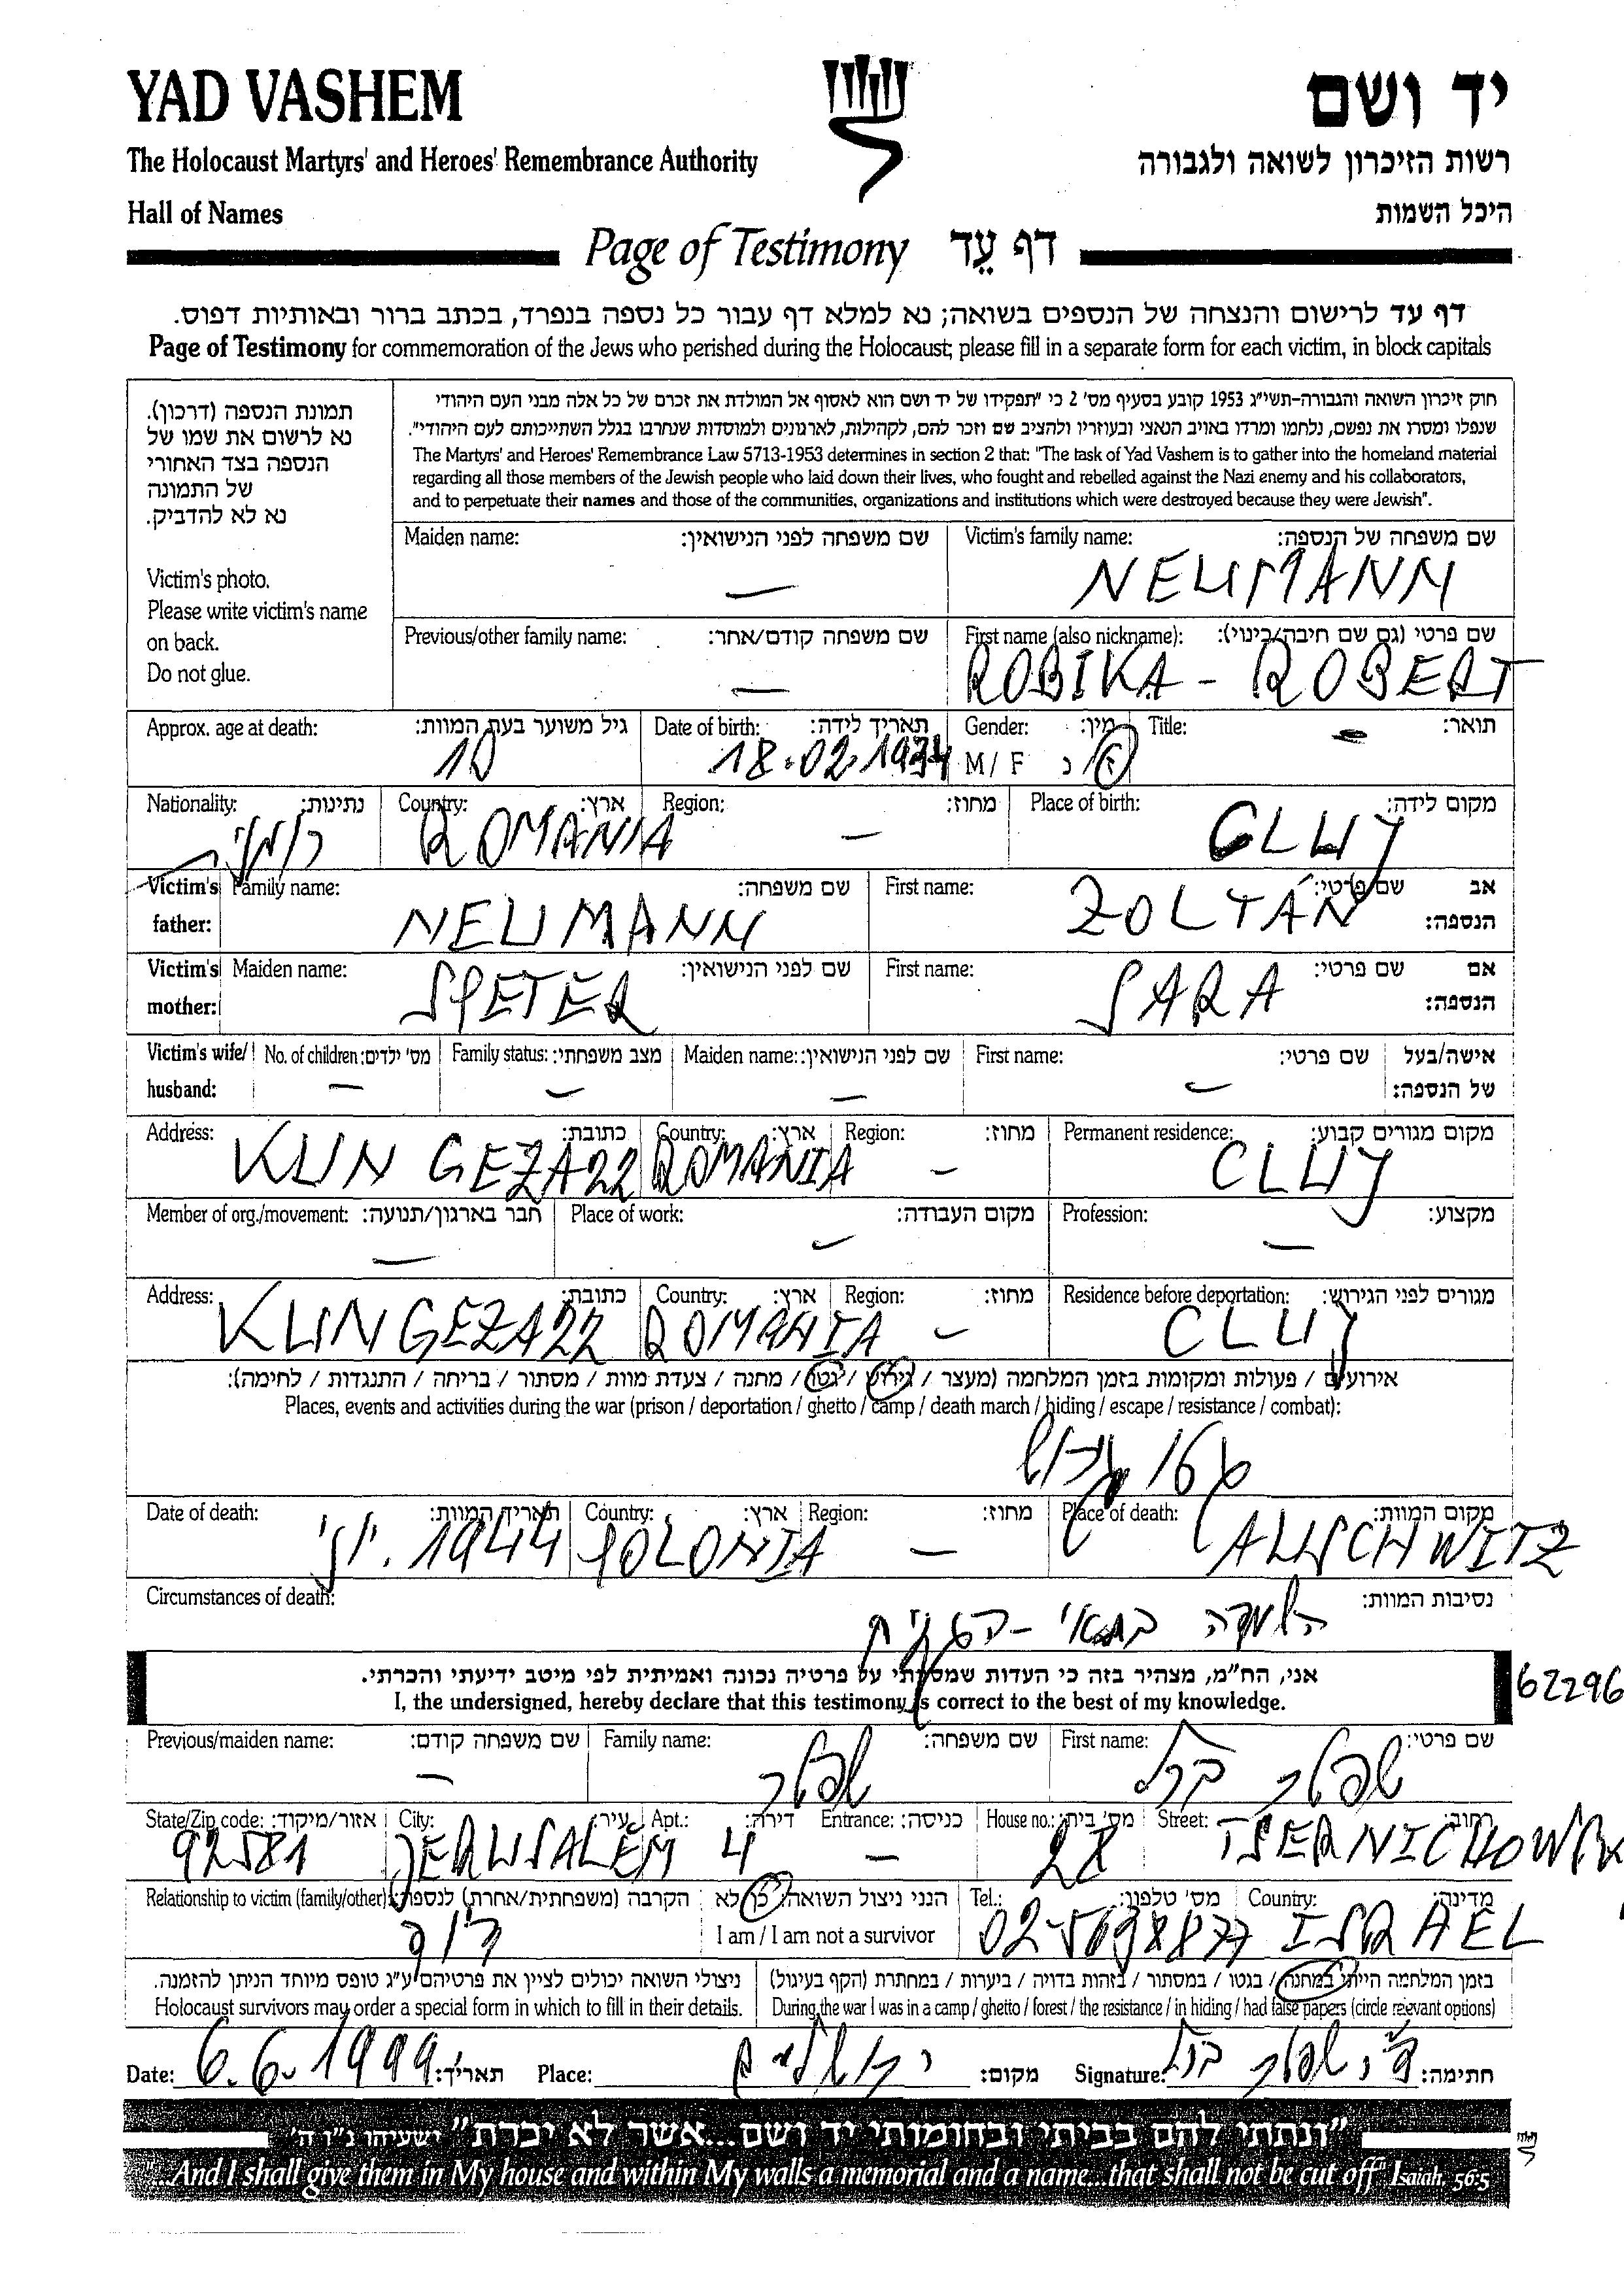 YAD VASHEM
יד ושם
The Holocaust Martyrs' and Heroes' Remembrance Authority
רשות הזיכרון לשואה ולגבורה
Hall of Names
היכל השמות
Page of Testimony דף עֵד
דף עד לרישום והנצחה של הנספים בשואה; נא למלא דף עבור כל נספה בנפרד, בכתב ברור ובאותיות דפוס.
Page of Testimony for commemoration of the Jews who perished during the Holocaust; please fill in a separate form for each victim, in block capitals
תמונת הנספה (דרכון).
נא לרשום את שמו של
הנספה בצד האחורי
של התמונה
נא לא להדביק.
Victim's photo.
Please write victim's name
on back.
Do not glue.
חוק זיכרון השואה והגבורה-תשי"ג 1953 קובע בסעיף מס' 2 כי "תפקידו של יד ושם הוא לאסוף אל המולדת את זכרם של כל אלה מבני העם היהודי
שנפלו ומסרו את נפשם, נלחמו ומרדו באויב הנאצי ובעוזריו ולהציב שם וזכר להם, לקהילות, לארגונים ולמוסדות שנחרבו בגלל השתייכותם לעם היהודי".
The Martyrs' and Heroes' Remembrance Law 5713-1953 determines in section 2 that: "The task of Yad Vashem is to gather into the homeland material
regarding all those members of the Jewish people who laid down their lives, who fought and rebelled against the Nazi enemy and his collaborators,
and to perpetuate their names and those of the communities, organizations and institutions which were destroyed because they were Jewish".
Maiden name: שם משפחה לפני הנישואין: Victim's family name: שם משפחה של הנספה:
— NEUMANN
Previous/other family name: שם משפחה קודם/אחר: First name (also nickname): שם פרטי (גם שם חיבה/כינוי):
— ROBIKA - ROBERT
Approx. age at death: גיל משוער בעת המוות: Date of birth: תאריך לידה: Gender: מין: Title: תואר:
10 18.02.1934 M / F ז / נ —
Nationality: נתינות: Country: ארץ: Region: מחוז: Place of birth: מקום לידה:
ROMANIA — CLUJ
Victim's father: Family name: שם משפחה: First name: שם פרטי: אב הנספה:
NEUMANN ZOLTÁN
Victim's mother: Maiden name: שם לפני הנישואין: First name: שם פרטי: אם הנספה:
SPETER SARA
Victim's wife/ husband: No. of children: מס' ילדים: Family status: מצב משפחתי: Maiden name: שם לפני הנישואין: First name: שם פרטי: אישה/בעל של הנספה:
— — — —
Address: כתובת: Country: ארץ: Region: מחוז: Permanent residence: מקום מגורים קבוע:
KUN GEZA 22 ROMANIA — CLUJ
Member of org./movement: חבר בארגון/תנועה: Place of work: מקום העבודה: Profession: מקצוע:
— — —
Address: כתובת: Country: ארץ: Region: מחוז: Residence before deportation: מגורים לפני הגירוש:
KUN GEZA 22 ROMANIA — CLUJ
אירועים / פעולות ומקומות בזמן המלחמה (מעצר / גירוש / גטו / מחנה / צעדת מוות / מסתור / בריחה / התנגדות / לחימה):
Places, events and activities during the war (prison / deportation / ghetto / camp / death march / hiding / escape / resistance / combat):
Date of death: תאריך המוות: Country: ארץ: Region: מחוז: Place of death: מקום המוות:
יוני . 1944 POLONIA — AUSCHWITZ
Circumstances of death: נסיבות המוות:
השמדה
אני, הח"מ, מצהיר בזה כי העדות שמסרתי על פרטיה נכונה ואמיתית לפי מיטב ידיעתי והכרתי.
I, the undersigned, hereby declare that this testimony is correct to the best of my knowledge.
62296
Previous/maiden name: שם משפחה קודם: Family name: שם משפחה: First name: שם פרטי:
— שפטר שפטר
State/Zip code: אזור/מיקוד: City: עיר: Apt.: דירה: Entrance: כניסה: House no.: מס' בית: Street: רחוב:
92581 JERUSALEM 4 — 28
Relationship to victim (family/other): הקרבה (משפחתית/אחרת) לנספה: הנני ניצול השואה: כן / לא Tel.: מס' טלפון: Country: מדינה:
דוד I am / I am not a survivor 02-5698877 ISRAEL
ניצולי השואה יכולים לציין את פרטיהם ע"ג טופס מיוחד הניתן להזמנה.
Holocaust survivors may order a special form in which to fill in their details.
בזמן המלחמה הייתי במחנה / בגטו / במסתור / בזהות בדויה / ביערות / במחתרת (הקף בעיגול)
During the war I was in a camp / ghetto / forest / the resistance / in hiding / had false papers (circle relevant options)
Date: 6.6.1999 תאריך: Place: ירושלים מקום: Signature: שפטר חתימה:
"ונתתי להם בביתי ובחומותי יד ושם...אשר לא יכרת" ישעיהו נ"ו ה'
"...And I shall give them in My house and within My walls a memorial and a name...that shall not be cut off" Isaiah 56:5